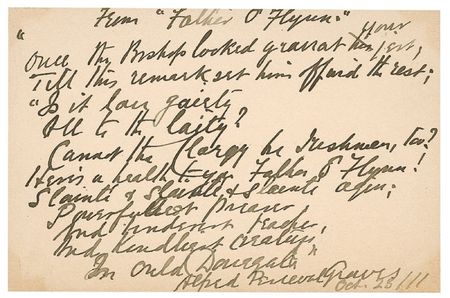 From "Father O'Flynn."
"Once the Bishop looked grave at your jest,
Till this remark set him off wid the rest;
"Is it lave gaiety
All to the laity?
Cannot the Clergy be Irishmen, too?
Here's a health to you, Father O'Flynn!
Slainté & Slainté & Slainté agin;
Powerfullest Preacher,
And tinderest teacher,
And kindliest creature,
In ould Donegal."
Alfred Perceval Graves
Oct. 23/11